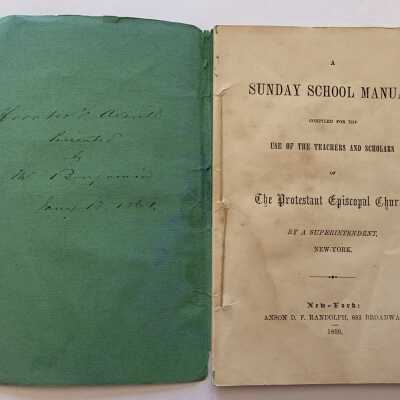 Presented
by
A
SUNDAY SCHOOL MANUA
COMPILED FOR THE
USE OF THE TEACHERS AND SCHOLARS
OF
The Protestant Episcopal Churc
BY A SUPERINTENDENT,
NEW-YORK.
New-York:
ANSON D. F. RANDOLPH, 683 BROADWA